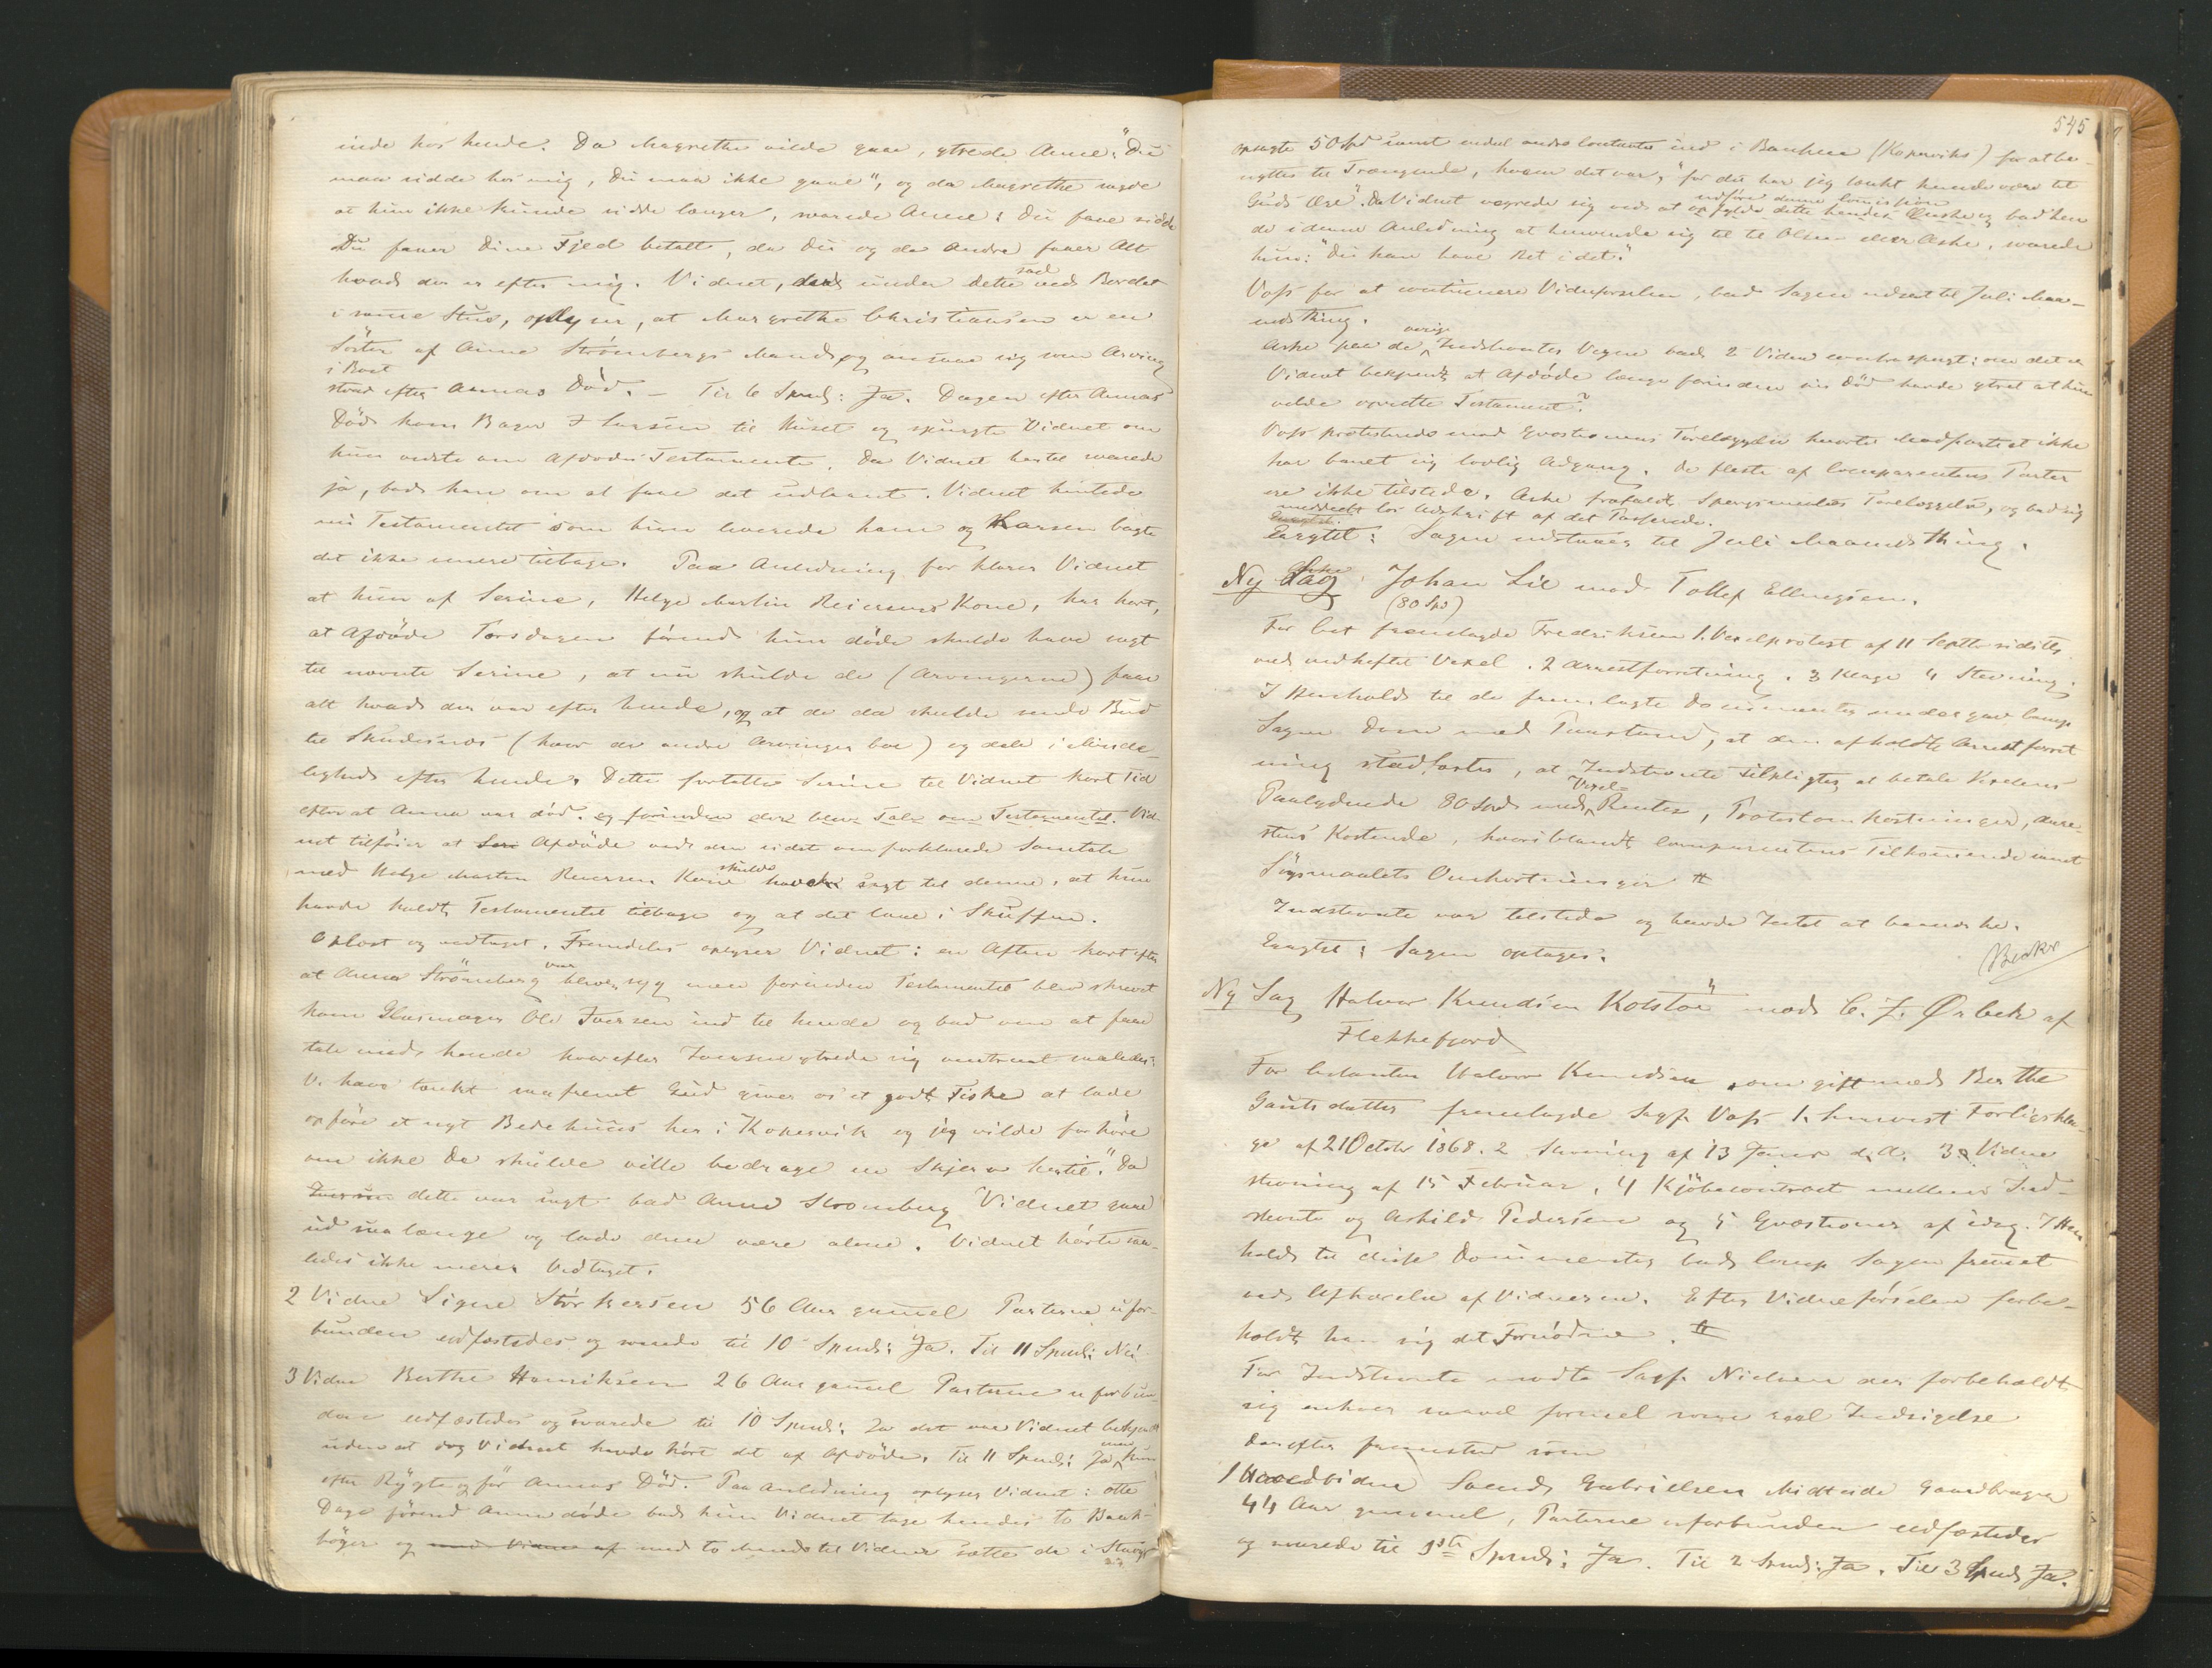 inde hos hende. Da Magrethe vilde gaae, ytrede Anne: "Du
maa sidde hos mig, Du maa ikke gaae", og da Magrethe sagde
at hun ikke kunde sidde længer, svarede Anne: Du faae sidde
Du faaer Dine Fjed betalt, da Du og de Andre faaer Alt
hvad der er efter mig. Vidnet, der under dette sad ved Bordet
i samme Stue, oplyser, at Margrethe Christiansen er en
Söster af Anne Strömbergs Mand, og ansaae sig som Arving
i Boet
strax efter Annas Död. – Til 6 Spmd: Ja. Dagen efter Annas
Död kom Bager J Larsen til Huset og spurgte Vidnet om
hun vidste om Afdödes Testamente. Da Vidnet hertil svarede
ja, bad han om at faae det udlaant. Vidnet hentede
nu Testamentet som hun leverede ham og Larsen bragte
det ikke mere tilbage. Paa Anledning forklarer Vidnet
at hun af Serine, Helge Martin Reiersens Kone, har hört,
at Afdöde Torsdagen förend hun döde skulde have sagt
til nævnte Serine, at nu skulde de (Arvingerne) faae
alt hvad der var efter hende, og at de da skulde sende Bud
til Skudesnæs (hvor de andre Arvinger boe) og dele i Minde
lighed efter hende. Dette fortalte Serine til Vidnet kort Tid
efter at Anna var död. og forinden der blev Tale om Testamentet. Vid-
net tilföier at Afdöde ved den sidst omforklarede Samtale
med Helge Martin Reiersens Kone skulde have sagt til denne, at hun
havde holdt Testamentet tilbage og at det laae i Skuffen.
Oplæst og vedtaget. Fremdeles oplyser Vidnet: en Aften kort efter
at Anna Strömberg var bleven syg men forinden Testamentet blev skrevet
kom Glasmager Ole Iversen ind til hende og bad om at faae
tale med hende hvorefter Iversen ytrede sig omtrent saaledes:
V. have tænkt saafremt Gud giver os et godt Fiske at lade
opföre et nyt Bedehuus her i Kopervik og jeg vilde forhöre
om ikke De skulde ville bedrage en Skjerv hertil." Da
Iversen dette var sagt bad Anne Stromberg Vidnet gaae
ud saa længe og lade dem være alene. Vidnet hörte saa-
ledes ikke mere. Vedtaget.
2 Vidne Signe Störkersen 56 Aar gammel Parterne ufor-
bunden edfæstedes og svarede til 10 Spmd: Ja. Til 11 Spmd: Nei
3 Vidne Berthe Henriksen 26 Aar gammel Parterne uforbun-
den edfæstedes og svarede til 10 Spmd: Ja det var Vidnet bekjendt
uden at dog Vidnet havde hört det af Afdöde. Til 11 Spmd: Ja men kun
efter Rygte og för Annas Död. Paa Anledning oplyser Vidnet: otte
Dage förend Anne döde bad hun Vidnet tage hendes to Bank-
böger og med Vidne af med to Mænd til Vidner sætte de i Stuen
545
opsagte 50 Spd samt endel andre Contanter ind i Banken (Koperviks) for at be-
nyttes til Trængende, hvem det var, "for det har jeg tænkt kunde være til
udföre denne Comission
Guds Ære". Da Vidnet vægrede sig ved at opfylde dette hendes Önske og bad hen
de i denne Anledning at henvende sig til Olsen eller Aske, svarede
hun: "Du kan have Ret i det."
Voss for at continuere Vidneförselen, bad Sagen udsat til Juli Maa-
nedsthing.
Aske paa de övrige Indstevntes Vegne bad 2 Vidne contraspurgt: om det er
Vidnet bekjendt at Afdöde længe forinden sin Död havde ytret at hun
vilde oprette Testament?
Voss protesterede mod Qvæstionens Forelæggelse hvortil Modpartiet ikke
har banet sig lovlig Adgang. De fleste af Comparentens Parter
ere ikke tilstede. Aske frafaldt Spörgsmaalets Forelæggelse, og bad sig
meddeelt los Udskrift af det Passerede.
Eragtet: Sagen udstaaer til Juli Maanedsthing.
Ny Sag Johan Lie mod Tollef Ellingsen.
(80 Spd)
For Cit fremlagde Fredriksen 1. Vexelprotest af 11 Septbr sidstl.
med vedheftet Vexel. 2 Arrestforretning. 3 Klage 4 Stevning.
I Henhold til de fremlagte Documenter undergav Comp.
Sagen Dom med Paastand, at den afholdte Arrestforret
ning stadfæstes, at Indstevnte tilpligtes at betale Vexelens
Paalydende 80 Spd med Vexel-Renter, Protestomkostninger, Arre-
stens Kostende, hvoriblandt Comparentens Tilkommende samt
Sögsmaalets Omkostninger #
Indstevnte var tilstede og havde Intet at bemærke.
Eragtet: Sagen optages.
Ny Sag Halvor Knudsen Kolstöe mod C. Z. Ørbek af
Flekkefjord
For Citanten Halvor Knudsen, som gift med Berthe
Gautsdatter fremlagde Sagf. Voss 1. henviist Forligskla-
ge af 21 Octobr 1868. 2 Stevning af 13 Januar d. A. 3 Vidne
stevning af 15 Februar, 4 Kjöbecontract mellem Ind-
stevnte og Askild Pedersen og 5 Qvæstioner af idag. I Hen
hold til disse Documenter bad Comp. Sagen fremmet
ved Afhörelse af Vidnerne. Efter Vidneförselen forbe-
holdt han sig det Fornödne. #
For Indstevnte mödte Sagf. Nielsen der forbeholdt
sig enhver saavel formel som reel Indsigelse
Derefter fremstod som
1 Hovedvidne Svend Gabrielsen Midteide Gaardbruger
44 Aar gammel, Parterne uforbunden edfæstedes
og svarede til 1ste Spmd: Ja. Til 2 Spmd: Ja. Til 3 Spmd Ja.